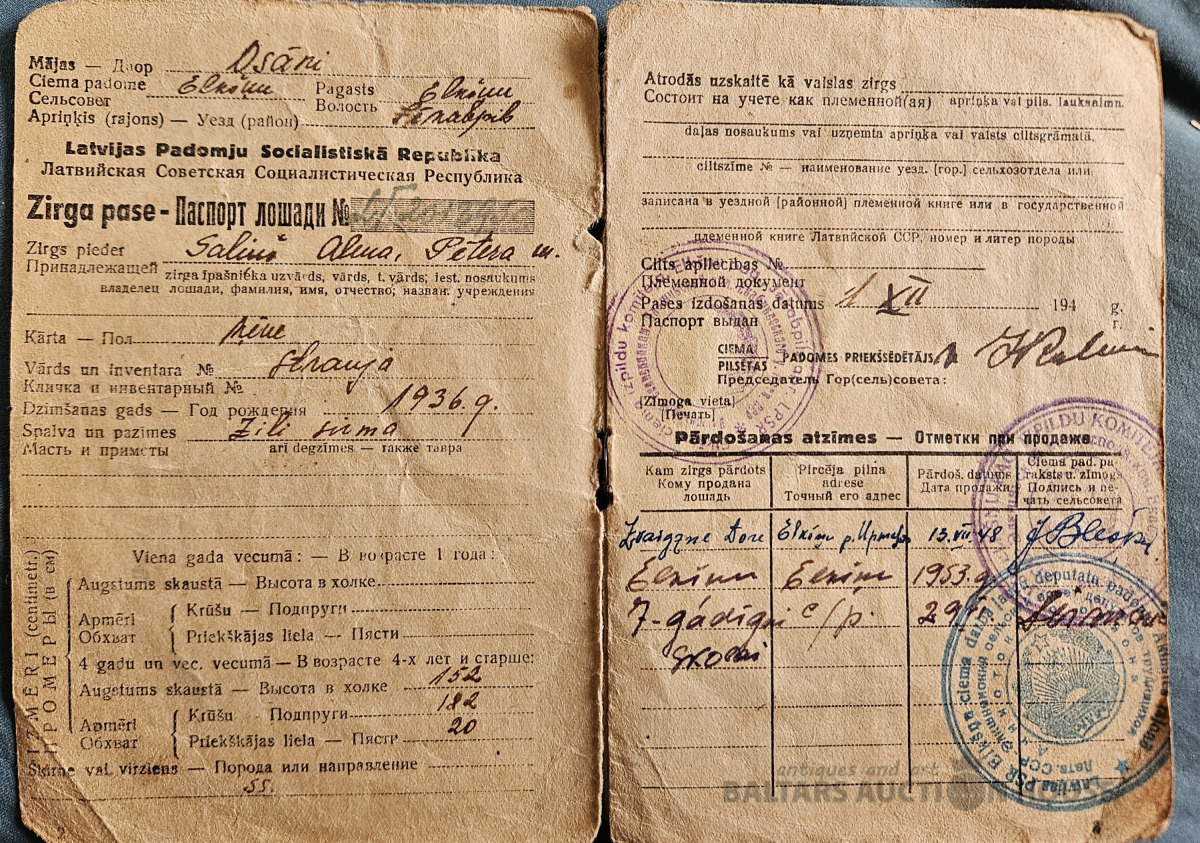 Mājas — Двор Osāni
Ciema padome Elkšņu Pagasts Elkšņu
Сельсовет Волость
Apriņķis (rajons) — Уезд (район) Jēkabpils
Latvijas Padomju Sociālistiskā Republika
Латвийская Советская Социалистическая Республика
Zirga pase - Паспорт лошади №
Zirgs pieder Saliņš Alma, Pētera m.
Принадлежащей zirga īpašnieka uzvārds, vārds, t. vārds; iest. nosaukums
владелец лошади, фамилия, имя, отчество; назван. учреждения
Kārta — Пол ķēve
Vārds un inventara № Straujā
Кличка и инвентарный №
Dzimšanas gads — Год рождения 1936. g.
Spalva un pazīmes Zili sirma
Масть и приметы arī degzīmes — также тавра
IZMĒRI (centimetr.)
ПРОМЕРЫ (в см)
Viena gada vecumā: — В возрасте 1 года:
Augstums skaustā — Высота в холке
Apmēri Krūšu — Подпруги
Обхват Priekškājas liela — Пясти
4 gadu un vec. vecumā — В возрасте 4-х лет и старше:
Augstums skaustā — Высота в холке 152
Apmēri Krūšu — Подпруги 182
Обхват Priekškājas liela — Пясти 20
Šķirne vai virziens — Порода или направление
55.
2
Atrodās uzskaitē kā vaislas zirgs
Состоит на учете как племенной(ая) apriņķa vai pils. lauksaimn.
daļas nosaukums vai uzņemta apriņķa vai valsts ciltsgrāmatā,
ciltszīme № — наименование уезд. [гор.] сельхозотдела или
записана в уездной [районной] племенной книге или в государственной
племенной книге Латвийской ССР, номер и литер породы
Cilts apliecības №
Племенной документ
Pases izdošanas datums 1 XII 194 g.
Паспорт выдан г.
CIEMA
PILSĒTAS PADOMES PRIEKŠSĒDĒTĀJS
Председатель Гор(сель)совета:
(Zīmoga vieta)
[Печать]
Pārdošanas atzīmes — Отметки при продаже
Kam zirgs pārdots Pircēja pilna adrese Pārdoš. datums Ciema pad. paraksts u. zīmogs
Кому продана лошадь Точный его адрес Дата продажи Подпись и печать сельсовета
Zvaigzne Dore Elkšņu p. 13. VII 48
Elkšņu Elkšņu 1953. g.
7-gādīgi c/p. 29
skolai
antiques and art
BALTARS AUCTION HOUSE